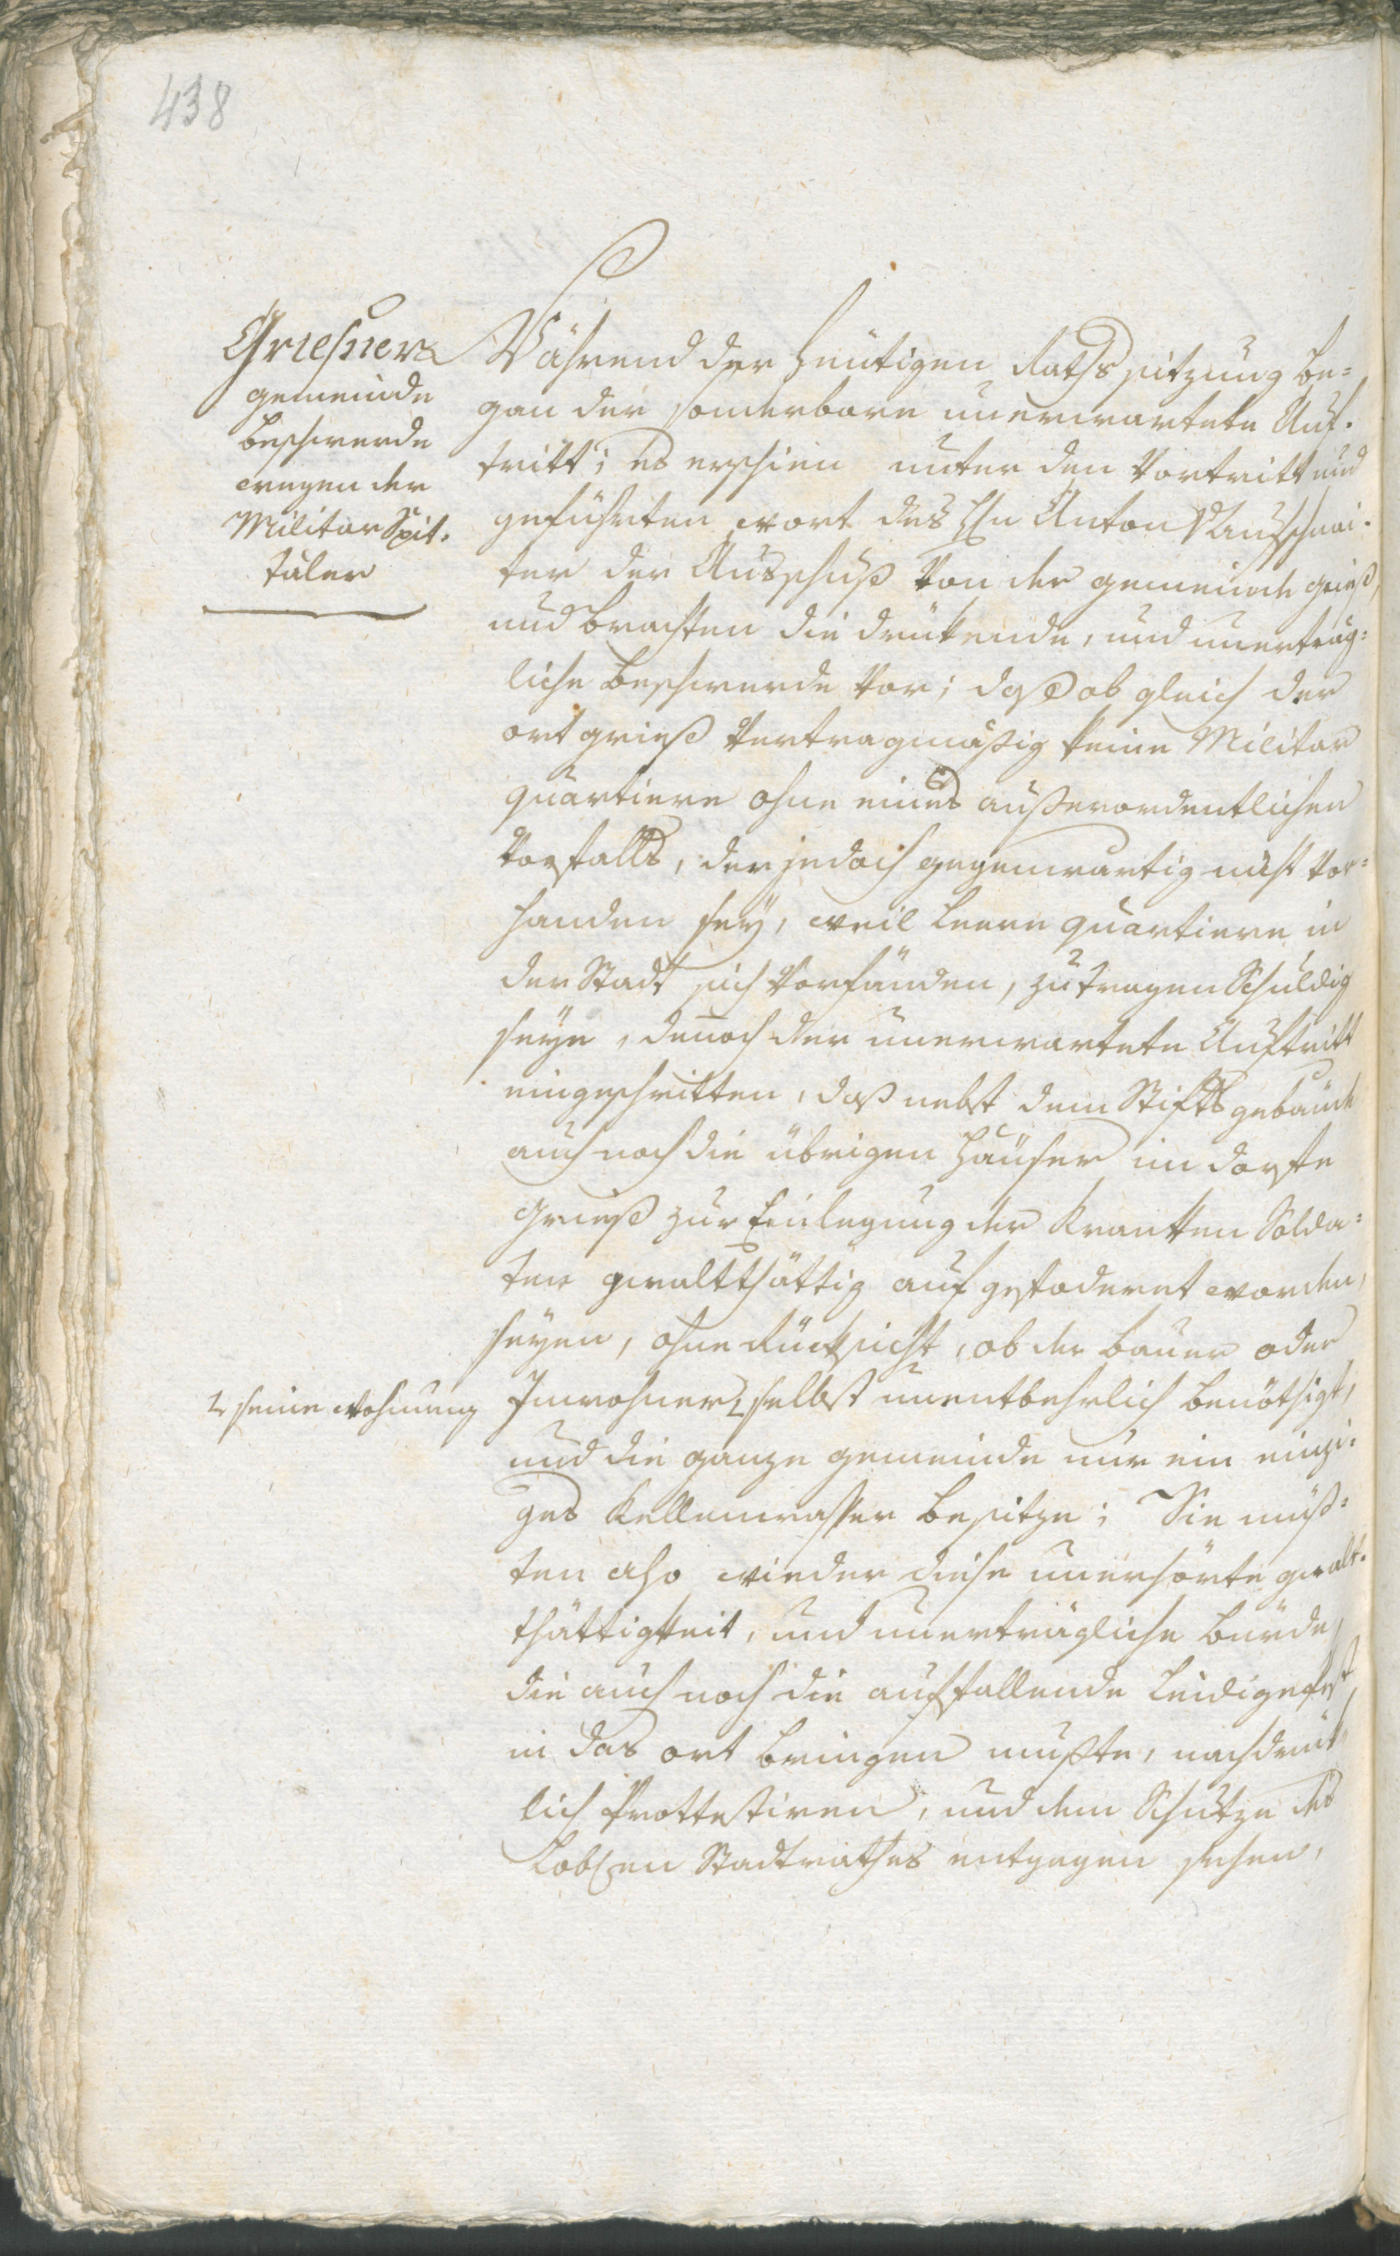 438
Griesner
gemeinde
beschwerde
wegen der
Militar Spit-
täler
Während der heütigen Rathssitzung be=
gan der sonderbare unerwartete Auf-
tritt; es erschien unter den Vortritt und
geführten wort des Hn Anton
ter der Ausschuß von der gemeinde grieß,
und brachten die drükende, und unerträg=
liche beschwerde vor; daß ob gleich der
ort grieß vertragmäßig keine Militar
quartiere ohne eines außerordentlichen
Vorfalls, der jedoch gegenwärtig nicht vor=
handen sey, weil leere quartiere in
der Stadt sich vorfünden, zu tragen Schuldig
seye, denoch der unerwartete Auftritt
eingeschritten, daß nebst dem Stiftsgebäude
auch noch die übrigen Häuser im dorfe
Grieß zur Einlegung der Krankken Solda=
ten gwaltthättig aufgefoderet worden,
seyen, ohne Rücksicht, ob der bauer oder
Inwohner selbst unentbehrlich benöthigt,
seine wohnung
und die ganze gemeinde nur ein einzi=
ges Kellenwasser besitze; Sie müß=
ten also wieder diese unerhörte gwalt-
thättigkeit, und unerträgliche bürde,
die auch noch die auffallende leidige Pest
in das ort bringen mußte, nachdrük
lich Prottestiren, und dem Schutze des
Löblen Stadtrathes entgegen sehen,